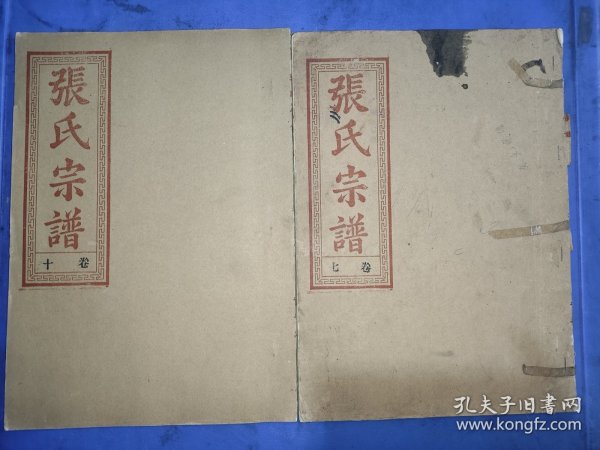 張氏宗譜
卷十
張氏宗譜
卷七
孔夫子旧书网
www.kongfz.com